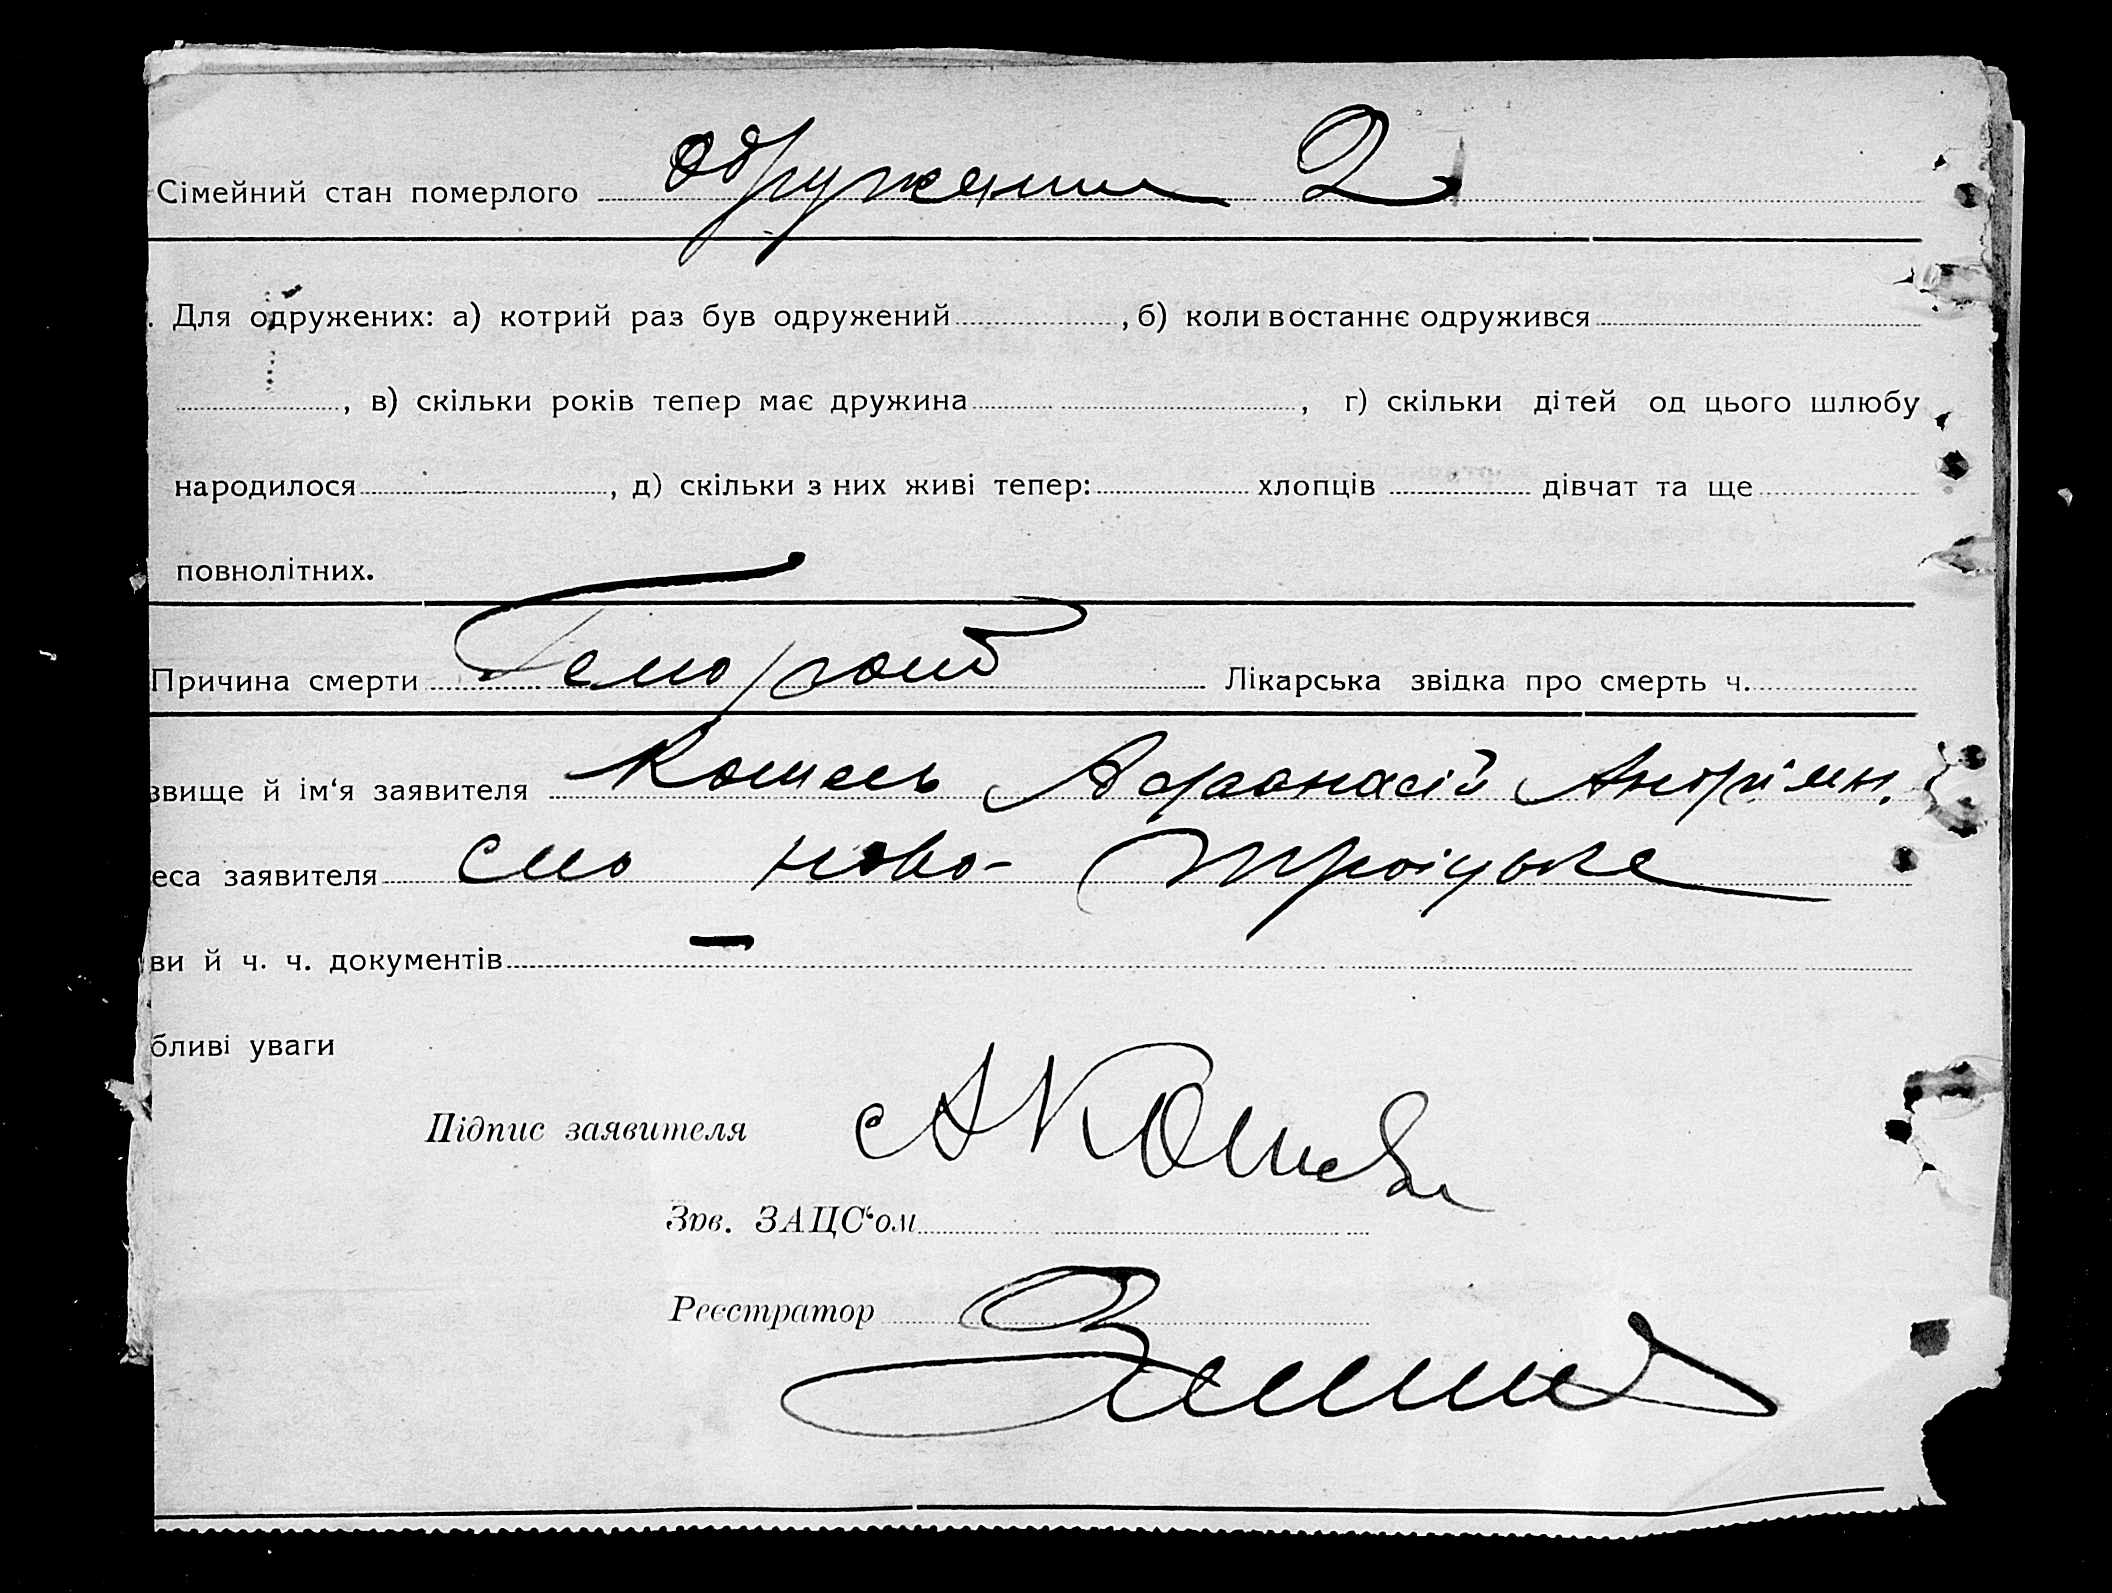 Сімейний стан померлого одружений 2
. Для одружених: а) котрий раз був одружений , б) коли востаннє одружився
, в) скільки років тепер має дружина , г) скільки дітей од цього шлюбу
народилося , д) скільки з них живі тепер: хлопців дівчат та ще
повнолітних.
Причина смерти Геморой Лікарська звідка про смерть ч.
звище й ім‘я заявителя Кошель Афанасій
еса заявителя село Ново-Троіцьке
ви й ч. ч. документів —
бливі уваги
Підпис заявителя АКошель
Зав. ЗАЦС‘ом
Реєстратор